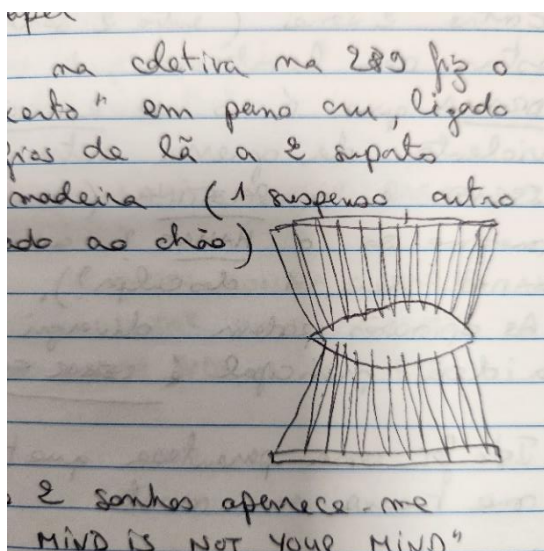 aper
na cletiva na 289 fiz o
certo" em pano cru, ligado
fios de lã a 2 suporto
madeira (1 suspenso, outro
ado ao chão)
2 sonhos aparece-me
MIND IS NOT YOUR MIND"